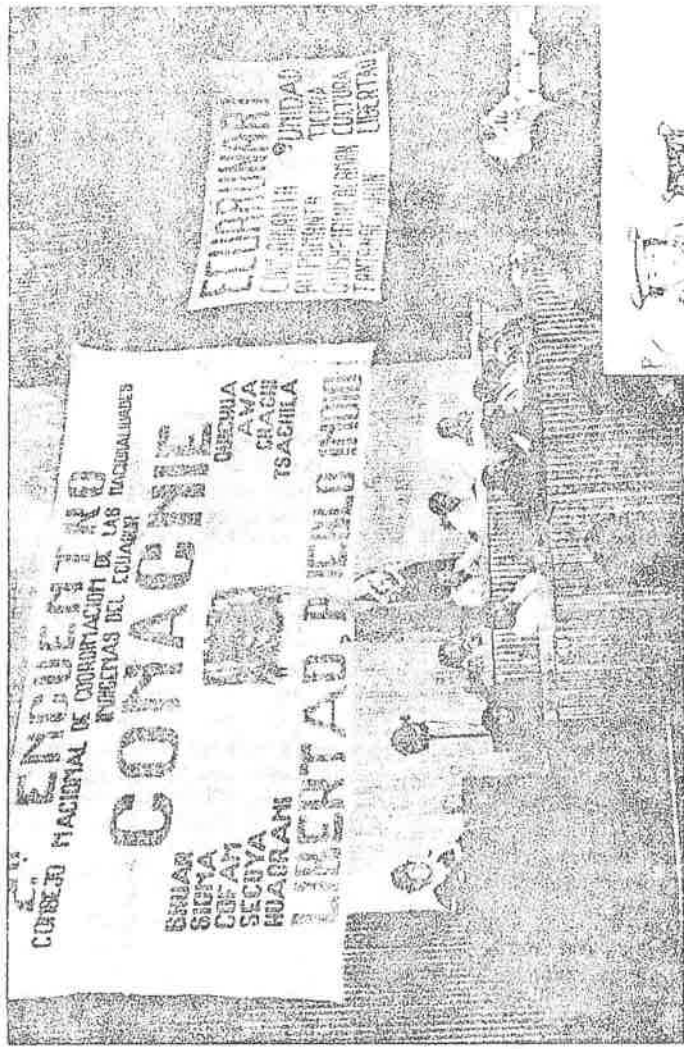 2º ENCUENTRO
CONSEJO NACIONAL DE COORDINACION DE LAS NACIONALIDADES
INDIGENAS DEL ECUADOR
CONACNIE
SHUAR
SIONA
COFAN
SECOYA
HUAORANI
QUICHUA
AWA
CHACHI
TSACHILA
LIBERTAD, PUEBLO INDIO
ECUARUNARI
UNIDAD
TIERRA
CULTURA
LIBERTAD